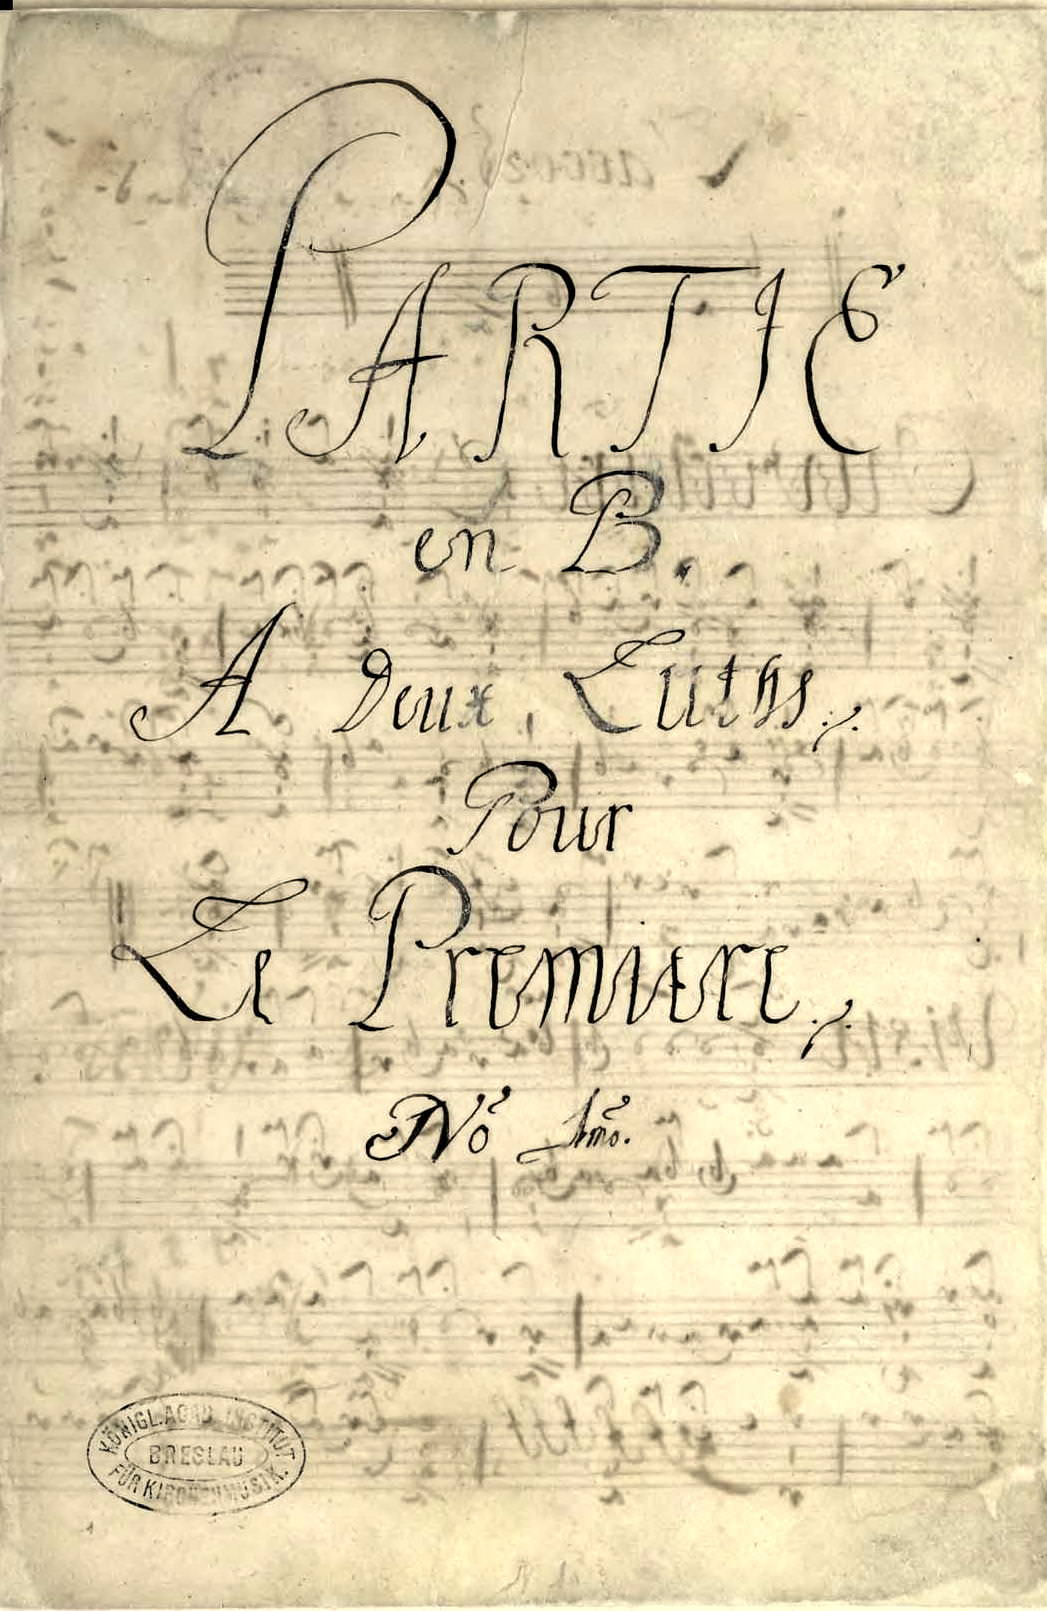 PARTIE
en B.
A Deux Luths.
Pour
Le Premiere.
No 1mo.
KÖNIGL. AGAD. INSTITUT
BRESLAU
FÜR KIRCHENMUSIK.